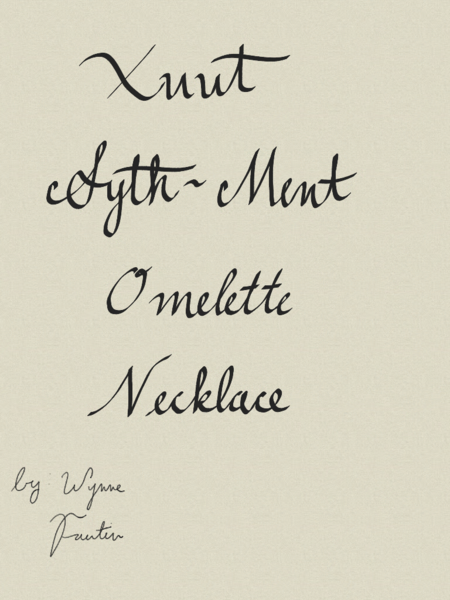 Xuut
Syth~Ment
Omelette
Necklace
by: Wynne
Fautin